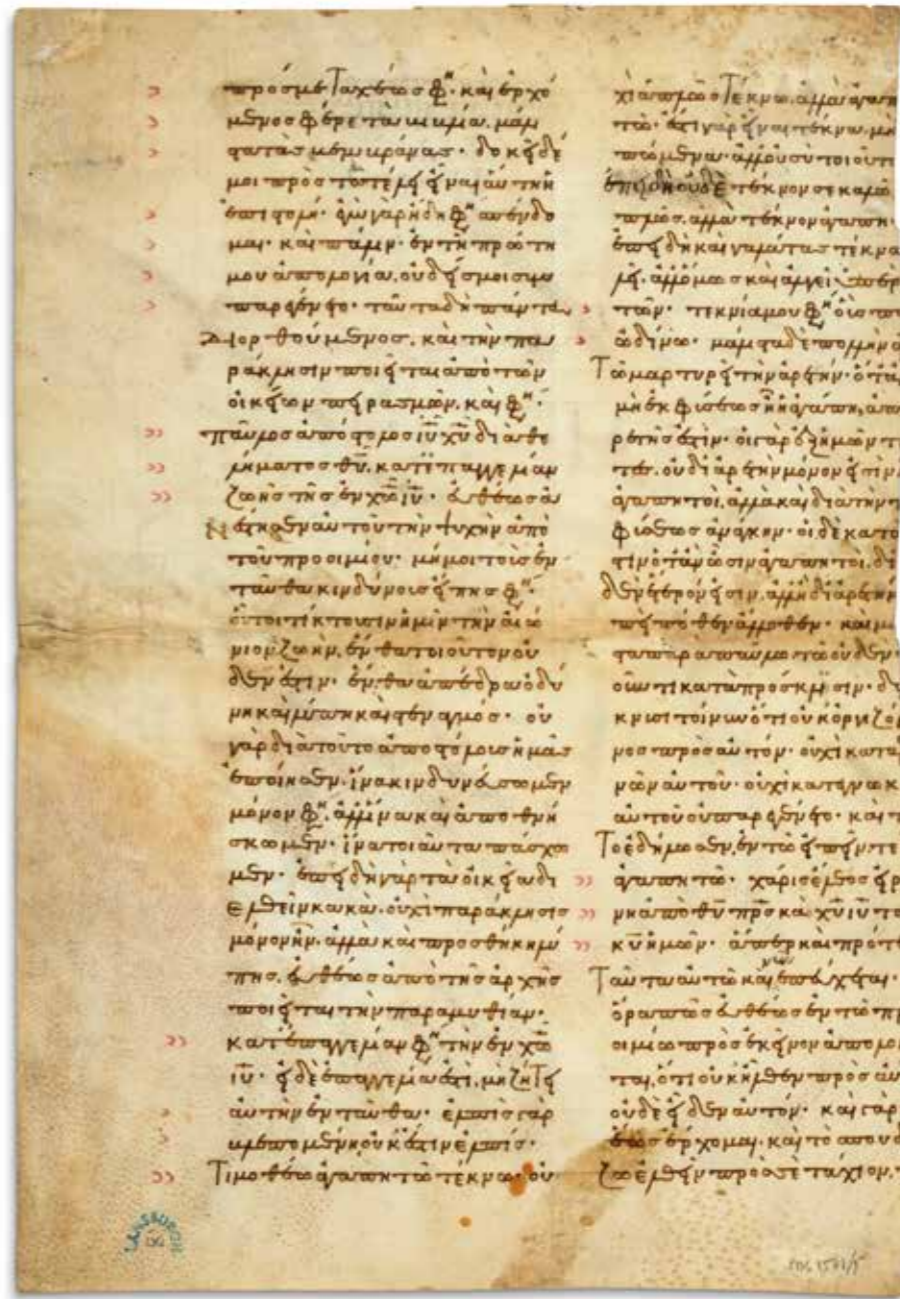 πρός με Ταχέως φη· καὶ ἐρχό
μενος φέρε τὰ βιβλία, μάλι
στα τὰς μεμβράνας· δοκεῖ δέ
μοι πρὸς τῷ τέλει εἶναι αὕτη ἡ
ἐπιστολή· ἐγὼ γὰρ ἤδη φη σπένδο
μαι· καὶ πάλιν· ἐν τῇ πρώτη
μου ἀπολογία, οὐδείς μοι συμ
παρεγένετο· ταῦτα δὴ πάντα
Διορθούμενος, καὶ τὴν πα
ράκλησιν ποιεῖται ἀπὸ τῶν
οἰκείων πειρασμῶν, καὶ φη·
παῦλος ἀπόστολος ιυ χυ διὰ θε
λήματος θυ, κατ' ἐπαγγελίαν
ζωῆς τῆς ἐν χω ιυ· εὐθέως ἀ
Νέστησεν αὐτοῦ τὴν ψυχὴν ἀπὸ
τοῦ προοιμίου· μή μοι τοὺς ἐν
ταῦθα κινδύνους εἴπης φη·
οὗτοι τίκτουσιν ἡμῖν τὴν αἰώ
νιον ζωήν, ἔνθα τοιοῦτον οὐ
δέν ἐστιν· ἔνθα ἀπέδρα ὀδύ
νη καὶ λύπη καὶ στεναγμός· οὐ
γὰρ διὰ τοῦτο ἀποστόλους ἡμᾶς
ἐποίησεν, ἵνα κινδυνεύσωμεν
μόνον φη, ἀλλ' ἵνα καὶ ἀποθνή
σκωμεν· ἵνα τοιαῦτα πάσχω
μεν· ἐπειδὴ γὰρ τὰ οἰκεῖα δι
Ελθεῖν κακὰ, οὐχὶ παράκλησις
μόνον ἦν, ἀλλὰ καὶ προσθήκη λύ
πης, εὐθέως ἀπὸ τῆς ἀρχῆς
ποιεῖται τὴν παραμυθίαν·
κατ' ἐπαγγελίαν φη τὴν ἐν χω
ιυ· εἰ δὲ ἐπαγγελία ἐστι, μὴ ζήτει
αὐτὴν ἐνταῦθα· ἐλπὶς γὰρ
βλεπομένη οὐκ ἔστιν ἐλπίς·
Τιμοθέω ἀγαπητῶ τέκνω· οὐ
χὶ ἁπλῶς Τέκνω, ἀλλὰ ἀγαπη
τῶ· ἔστι γὰρ εἶναι τέκνα, μὴ
ἀλλ' οὐ σὺ τοιοῦτ
ἐπειδὴ οὐδὲ τέκνον σε καλῶ
πλῶς, ἀλλὰ τέκνον ἀγαπη
ἐπειδὴ καὶ γαλάτας τέκνα
λεῖ, ἀλλ' ὅμως καὶ ἀλγεῖ ὑπὲρ
των· τεκνία μου φη οὓς π
ὠδίνω· μάλιστα δὲ πολλὴν
Τῶ μαρτυρεῖ τὴν ἀρετήν· ὅταν
μὴ ἐκ φύσεως ἡ ἀγάπη, ἀπ
ρετῆς ἐστιν· οἱ γὰρ ἐξ ἡμῶν τ
τες, οὐ δι' ἀρετὴν μόνον εἰσὶν
ἀγαπητοί, ἀλλὰ καὶ διὰ τὴν τ
φύσεως ἀνάγκην· οἱ δὲ κατὰ
πίστιν ὅταν ὦσιν ἀγαπητοί, δι
δὲν ἕτερόν εἰσιν, ἀλλ' ἢ δι' ἀρετὴν
ἐπεὶ πόθεν ἄλλοθεν· καὶ μ
στα παρὰ παύλω τῶ οὐδὲν
οῦντι κατὰ πρόσκλισιν· δε
κνυσι τοίνυν ὅτι οὐκ ὀργιζόμε
νος πρὸς αὐτόν· οὐχὶ κατα
νῶν αὐτοῦ· οὐχὶ κατεγνωκ
αὐτοῦ οὐ παρεγένετο· καὶ τ
Τοῦ ἐδήλωσεν, ἐν τῶ εἰπεῖν, τέ
ἀγαπητῶ· χάρις ἔλεος εἰρ
νη ἀπὸ θυ πρς καὶ χυ ιυ τοῦ
κυ ἡμῶν· ἅπερ καὶ πρότε
Ταῦτα αὐτῶ καὶ νῦν ἐπεύχεται·
ὅρα πῶς εὐθέως ἐν τῶ πρ
οιμίω πρὸς ἐκεῖνον ἀπολογ
ται, ὅτι οὐκ ἦλθεν πρὸς αὐ
οὐδὲ εἶδεν αὐτόν· καὶ γὰρ
ἕως ἔρχομαι, καὶ τὸ σπουδ
ζω ἐλθεῖν πρός σε τάχιον,
LANSBURGH
MS 1571/5